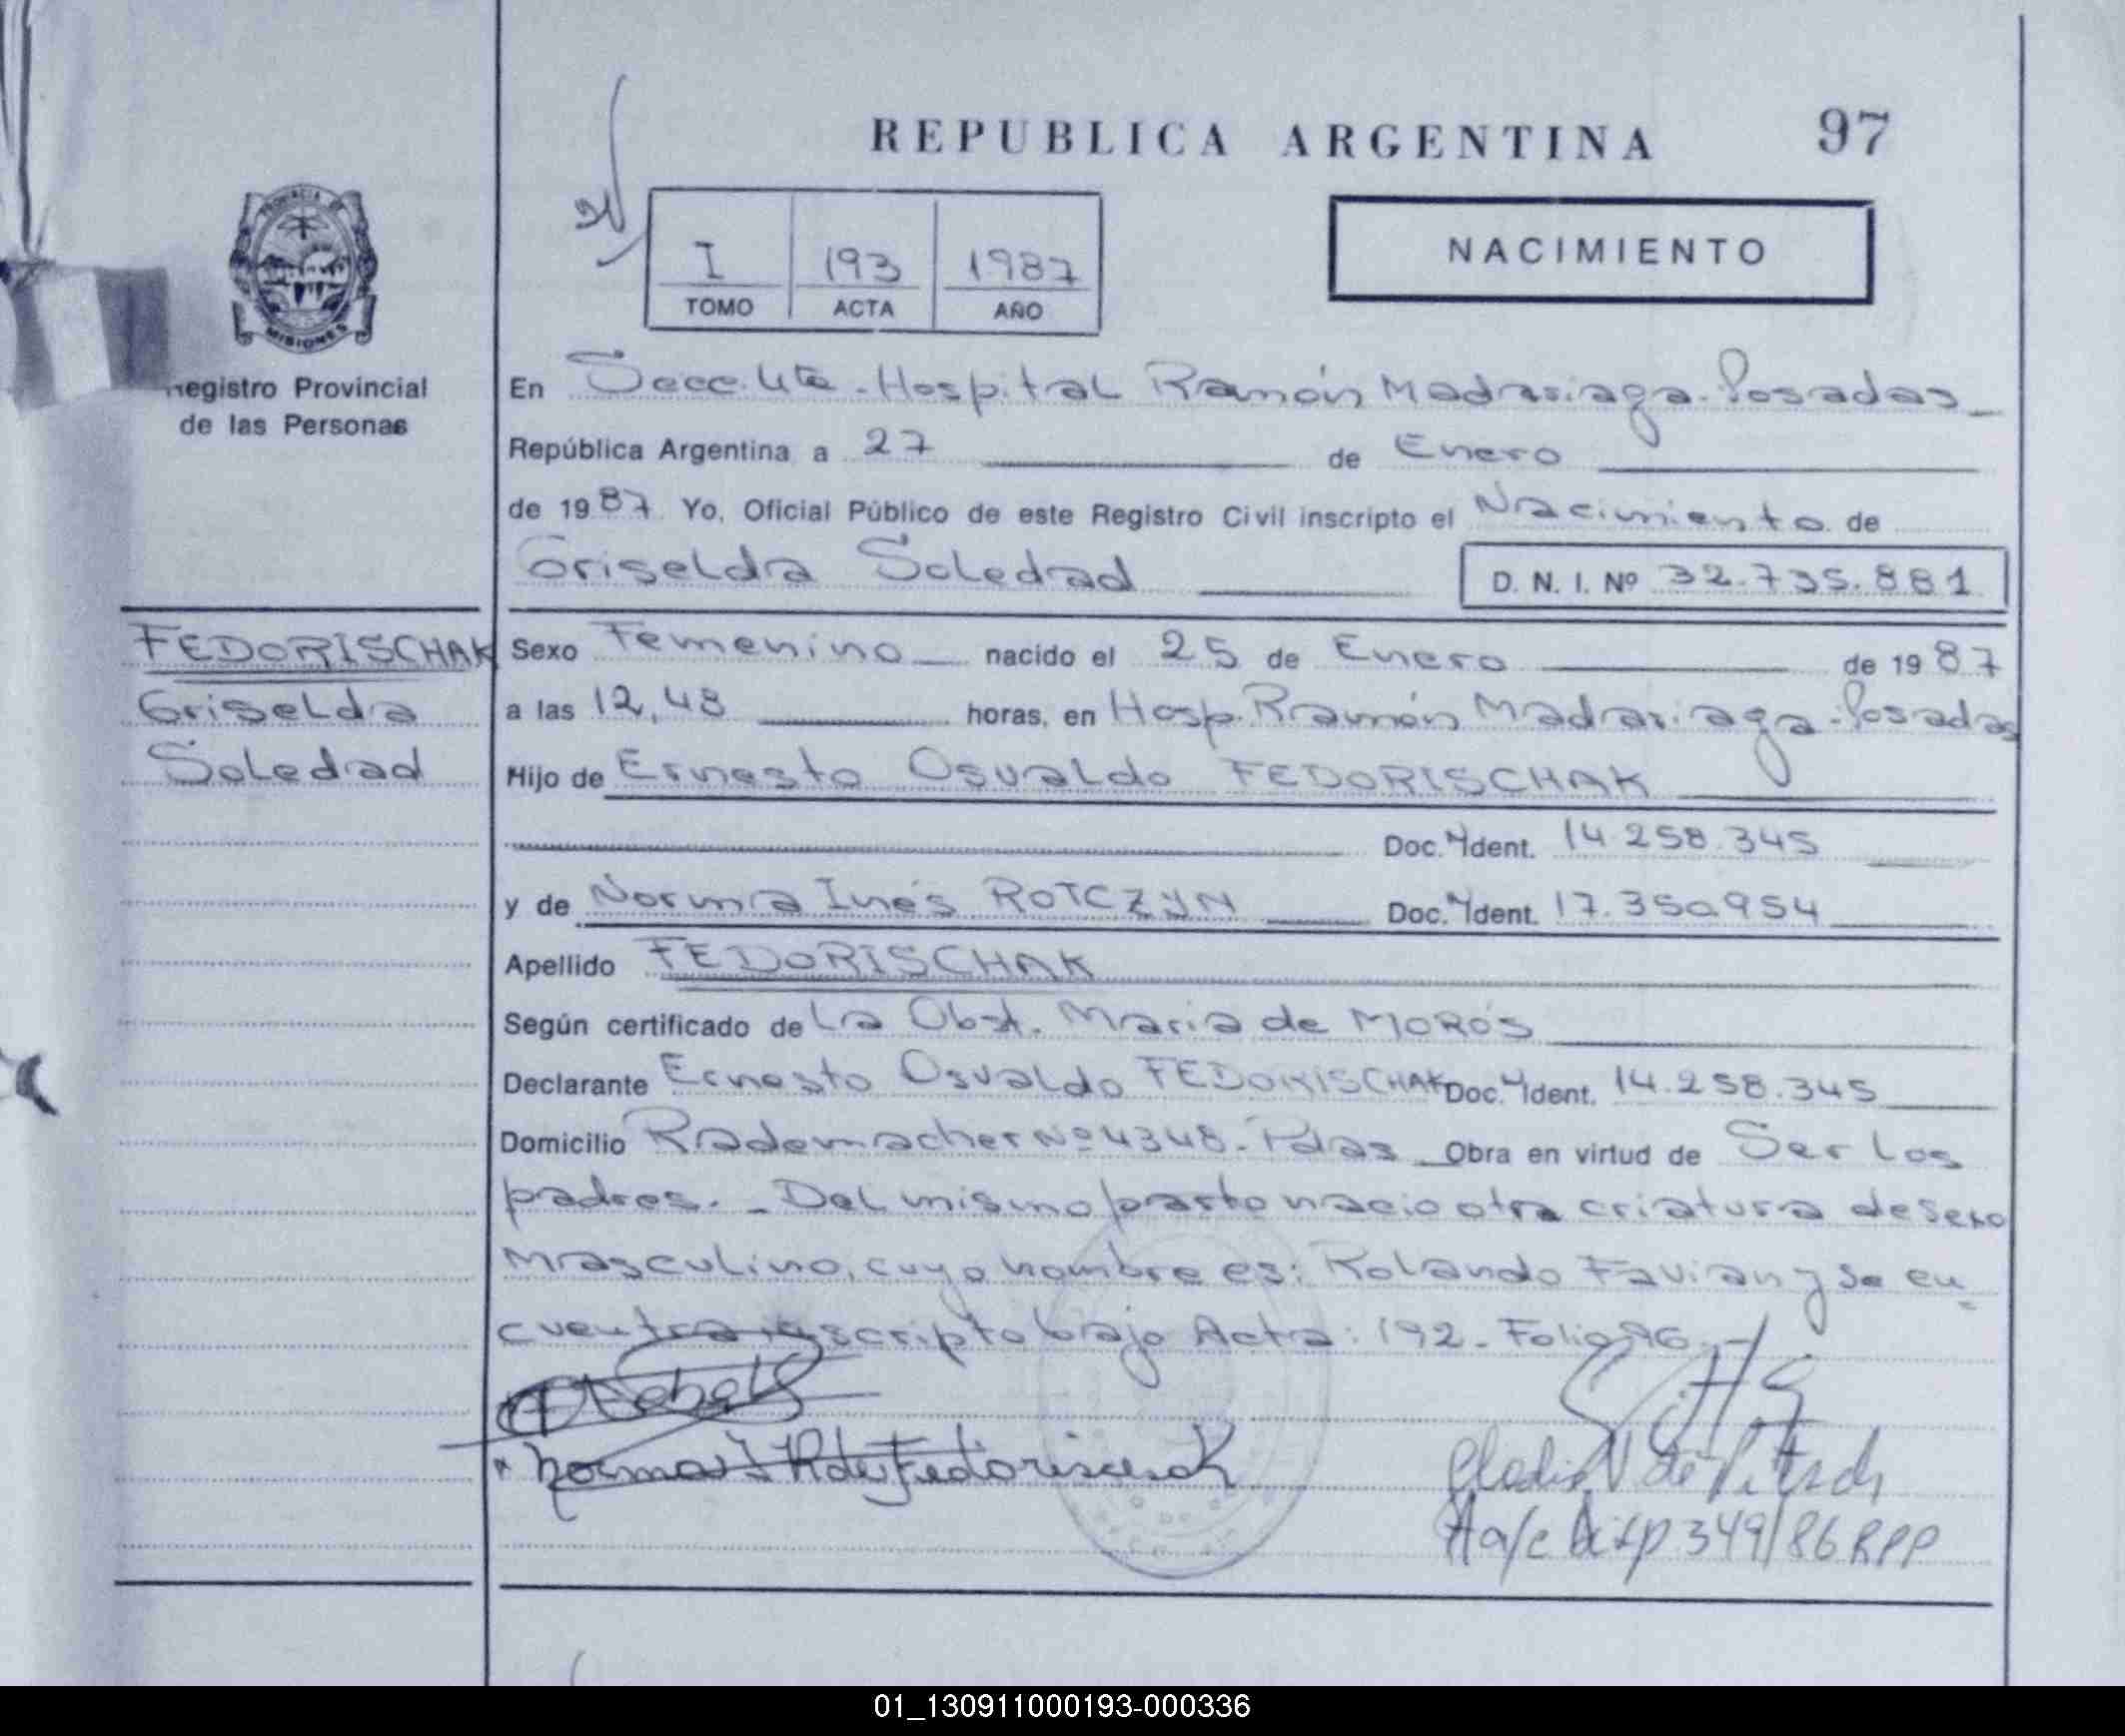 REPUBLICA ARGENTINA 97
I 193 1987
TOMO ACTA AÑO
NACIMIENTO
PROVINCIA DE
MISIONES
Registro Provincial
de las Personas
En Secc. 4ta - Hospital Ramón Madariaga - Posadas
República Argentina a 27 de Enero
de 1987 Yo, Oficial Público de este Registro Civil inscripto el Nacimiento de
Griselda Soledad D. N. I. Nº 32.735.881
FEDORISCHAK
Griselda
Soledad
Sexo Femenino nacido el 25 de Enero de 1987
a las 12,48 horas, en Hosp. Ramón Madariaga - Posadas
Hijo de Ernesto Osvaldo FEDORISCHAK
Doc. Ident. 14.258.345
y de Norma Inés ROTCZYN Doc. Ident. 17.350.954
Apellido FEDORISCHAK
Según certificado de La Obst. Maria de MOROS
Declarante Ernesto Osvaldo FEDORISCHAK Doc. Ident. 14.258.345
Domicilio Rademacher Nº 4348 - Pdas Obra en virtud de Ser los
padres. - Del mismo parto nacio otra criatura de sexo
Masculino, cuyo nombre es: Rolando Favian y se en
cuentra inscripto bajo Acta: 192 - Folio 96. -
Norma I R de Fedorischak
de
A/c Disp 349/86 RPP
01_130911000193-000336